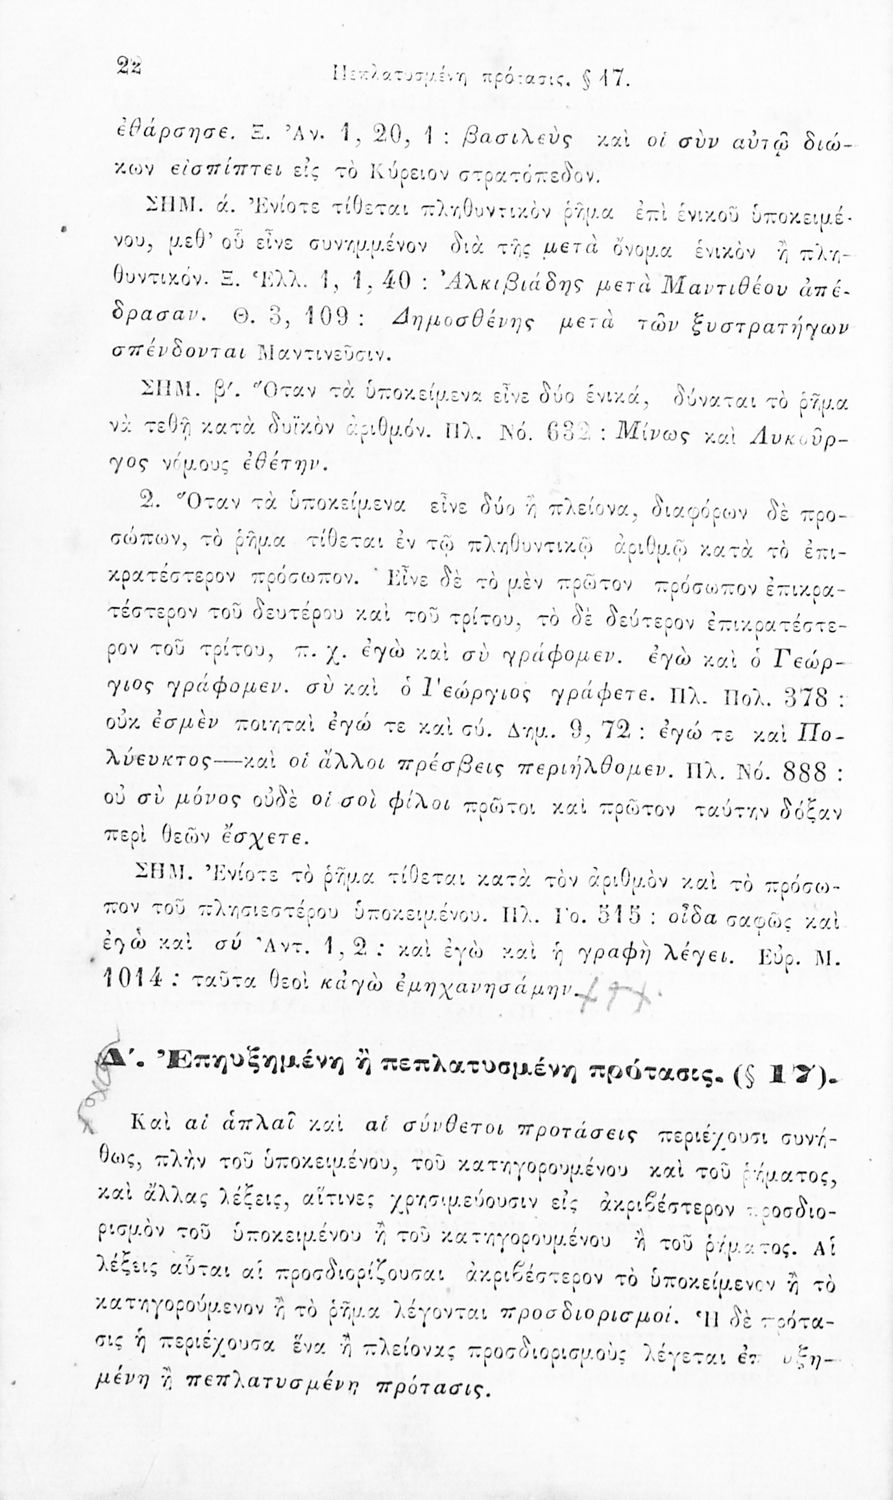 22
Πεπλατυσμένη πρότασις. § 17.
ἐθάρσησε. Ξ. Ἀν. 1, 20, 1 : βασιλεὺς καὶ οἱ σὺν αὐτῷ διώ-
κων εἰσπίπτει εἰς τὸ Κύρειον στρατόπεδον.
ΣΗΜ. ά. Ἐνίοτε τίθεται πληθυντικὸν ῥῆμα ἐπὶ ἑνικοῦ ὑποκειμέ-
νου, μεθ' οὗ εἶνε συνημμένον διὰ τῆς μετὰ ὄνομα ἑνικὸν ἢ πλη-
θυντικόν. Ξ. Ἑλλ. 1, 1, 40 : Ἀλκιβιάδης μετὰ Μαντιθέου ἀπέ-
δρασαν. Θ. 3, 109 : Δημοσθένης μετὰ τῶν ξυστρατήγων
σπένδονται Μαντινεῦσιν.
ΣΗΜ. β'. Ὅταν τὰ ὑποκείμενα εἶνε δύο ἑνικά, δύναται τὸ ῥῆμα
νὰ τεθῇ κατὰ δυϊκὸν ἀριθμόν. Πλ. Νό. 632 : Μίνως καὶ Λυκοῦρ-
γος νόμους ἐθέτην.
2. Ὅταν τὰ ὑποκείμενα εἶνε δύο ἢ πλείονα, διαφόρων δὲ προ-
σώπων, τὸ ῥῆμα τίθεται ἐν τῷ πληθυντικῷ ἀριθμῷ κατὰ τὸ ἐπι-
κρατέστερον πρόσωπον. Εἶνε δὲ τὸ μὲν πρῶτον πρόσωπον ἐπικρα-
τέστερον τοῦ δευτέρου καὶ τοῦ τρίτου, τὸ δὲ δεύτερον ἐπικρατέστε-
ρον τοῦ τρίτου, π. χ. ἐγὼ καὶ σὺ γράφομεν. ἐγὼ καὶ ὁ Γεώρ-
γιος γράφομεν. σὺ καὶ ὁ Γεώργιος γράφετε. Πλ. Πολ. 378 :
οὐκ ἐσμὲν ποιηταὶ ἐγώ τε καὶ σύ. Δημ. 9, 72 : ἐγώ τε καὶ Πο-
λύευκτος—καὶ οἱ ἄλλοι πρέσβεις περιήλθομεν. Πλ. Νό. 888 :
οὐ σὺ μόνος οὐδὲ οἱ σοὶ φίλοι πρῶτοι καὶ πρῶτον ταύτην δόξαν
περὶ θεῶν ἔσχετε.
ΣΗΜ. Ἐνίοτε τὸ ῥῆμα τίθεται κατὰ τὸν ἀριθμὸν καὶ τὸ πρόσω-
πον τοῦ πλησιεστέρου ὑποκειμένου. Πλ. Γο. 515 : οἶδα σαφῶς καὶ
ἐγὼ καὶ σύ Ἀντ. 1, 2 : καὶ ἐγὼ καὶ ἡ γραφὴ λέγει. Εὐρ. Μ.
1014 : ταῦτα θεοὶ κἀγὼ ἐμηχανησάμην.
Δ'. Ἐπηυξημένη ἢ πεπλατυσμένη πρότασις. (§ 17).
Καὶ αἱ ἁπλαῖ καὶ αἱ σύνθετοι προτάσεις περιέχουσι συνή-
θως, πλὴν τοῦ ὑποκειμένου, τοῦ κατηγορουμένου καὶ τοῦ ῥήματος,
καὶ ἄλλας λέξεις, αἵτινες χρησιμεύουσιν εἰς ἀκριβέστερον προσδιο-
ρισμὸν τοῦ ὑποκειμένου ἢ τοῦ κατηγορουμένου ἢ τοῦ ῥήματος. Αἱ
λέξεις αὗται αἱ προσδιορίζουσαι ἀκριβέστερον τὸ ὑποκείμενον ἢ τὸ
κατηγορούμενον ἢ τὸ ῥῆμα λέγονται προσδιορισμοί. Ἡ δὲ πρότα-
σις ἡ περιέχουσα ἕνα ἢ πλείονας προσδιορισμοὺς λέγεται ἐπηυξη-
μένη ἢ πεπλατυσμένη πρότασις.